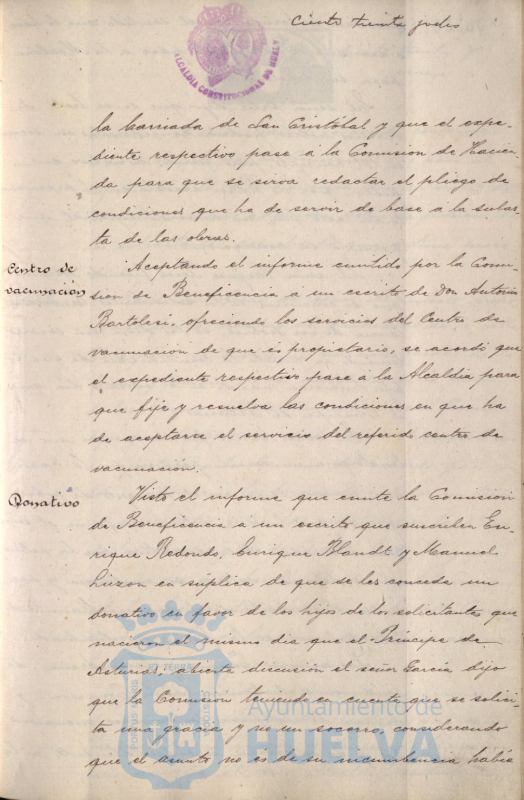 Ciento treinta y dos
ALCALDIA CONSTITUCIONAL DE HUELVA
la barriada de San Cristóbal y que el expe-
diente respectivo pase á la Comision de Hacien-
da para que se sirva redactar el pliego de
condiciones que ha de servir de base á la subas-
ta de las obras.
Centro de
vacunación
Aceptando el informe emitido por la Comi-
sion de Beneficencia á un escrito de Don Antonio
Bartolesi, ofreciendo los servicios del Centro de
vacunacion de que es propietario, se acordó que
el expediente respectivo pase á la Alcaldia para
que fije y resuelva las condiciones en que ha
de aceptarse el servicio del referido centro de
vacunacion.
Donativo
Visto el informe que emite la Comision
de Beneficencia a un escrito que suscriben En-
rique Redondo, Enrique Blandt y Manuel
Luzon en súplica de que se les conceda un
donativo en favor de los hijos de los solicitantes que
nacieron el mismo dia que el Principe de
Asturias, abierta discusion el señor García dijo
que la Comision teniendo en cuenta que se solici-
ta una gracia y no un socorro, considerando
que el asunto no es de su incumbencia habia
Ayuntamiento de
HUELVA